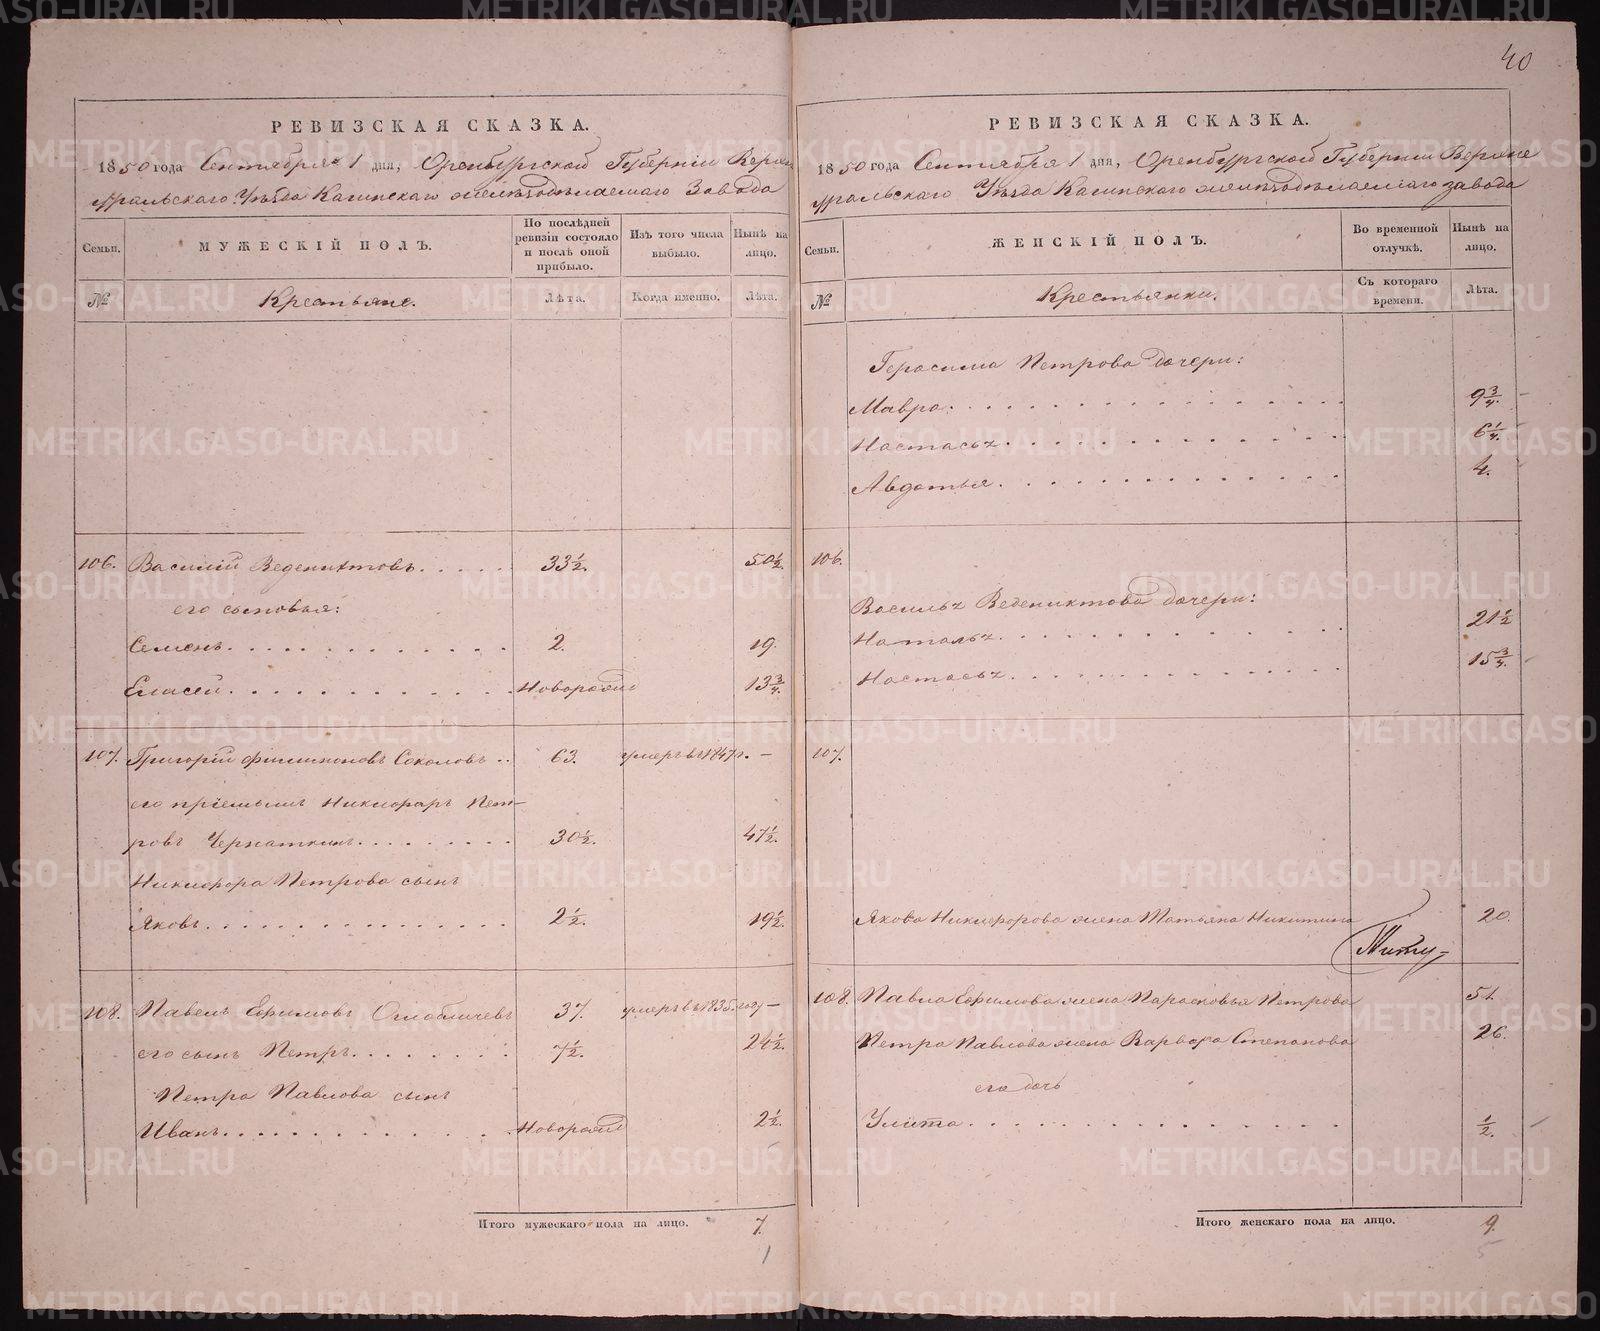 40
РЕВИЗСКАЯ СКАЗКА.
1850 года Сентября 1 дня, Оренбургской Губернiи Верхне
уральскаго Уѣзда Кагинскаго желѣзодѣлаемаго Завода
Семьи.
МУЖЕСКIЙ ПОЛЪ.
По послѣдней ревизiи состояло и послѣ оной прибыло.
Изъ того числа выбыло.
Нынѣ на лицо.
№
Крестьяне.
Лѣта.
Когда именно.
Лѣта.
106. Василiй Ведениктовъ. 33½. 50½.
его сыновья:
Семенъ. 2. 19.
Еласей. Новорожд 13¾.
107. Григорiй Филимоновъ Соколовъ 63. умеръ въ 1847 г. —
его прiемышъ Никифоръ Пет-
ровъ Черпаткинъ. 30½. 47½.
Никифора Петрова сынъ
Яковъ. 2½. 19½.
108. Павелъ Ефимовъ Оглобличевъ 37. умеръ въ 1835. году —
его сынъ Петръ. 7½. 24½.
Петра Павлова сынъ
Иванъ. Новорожд 2½.
Итого мужескаго пола на лицо. 7.
1
РЕВИЗСКАЯ СКАЗКА.
1850 года Сентября 1 дня, Оренбургской Губернiи Верхне
уральскаго Уѣзда Кагинскаго желѣзодѣлаемаго завода
Семьи.
ЖЕНСКIЙ ПОЛЪ.
Во временной отлучкѣ.
Нынѣ на лицо.
№
Крестьянки.
Съ котораго времени.
Лѣта.
Герасима Петрова дочери:
Мавра. 9¾.
Настасья. 6¼.
Авдотья. 4.
106.
Василья Ведениктова дочери:
Наталья. 21½
Настасья. 15¾.
107.
Якова Никифорова жена Татьяна Никитина 20.
108. Павла Ефимова жена Парасковья Петрова 51.
Петра Павлова жена Варвара Степанова 26.
его дочь
Улита. ½.
Итого женскаго пола на лицо. 9.
5
METRIKI.GASO-URAL.RU